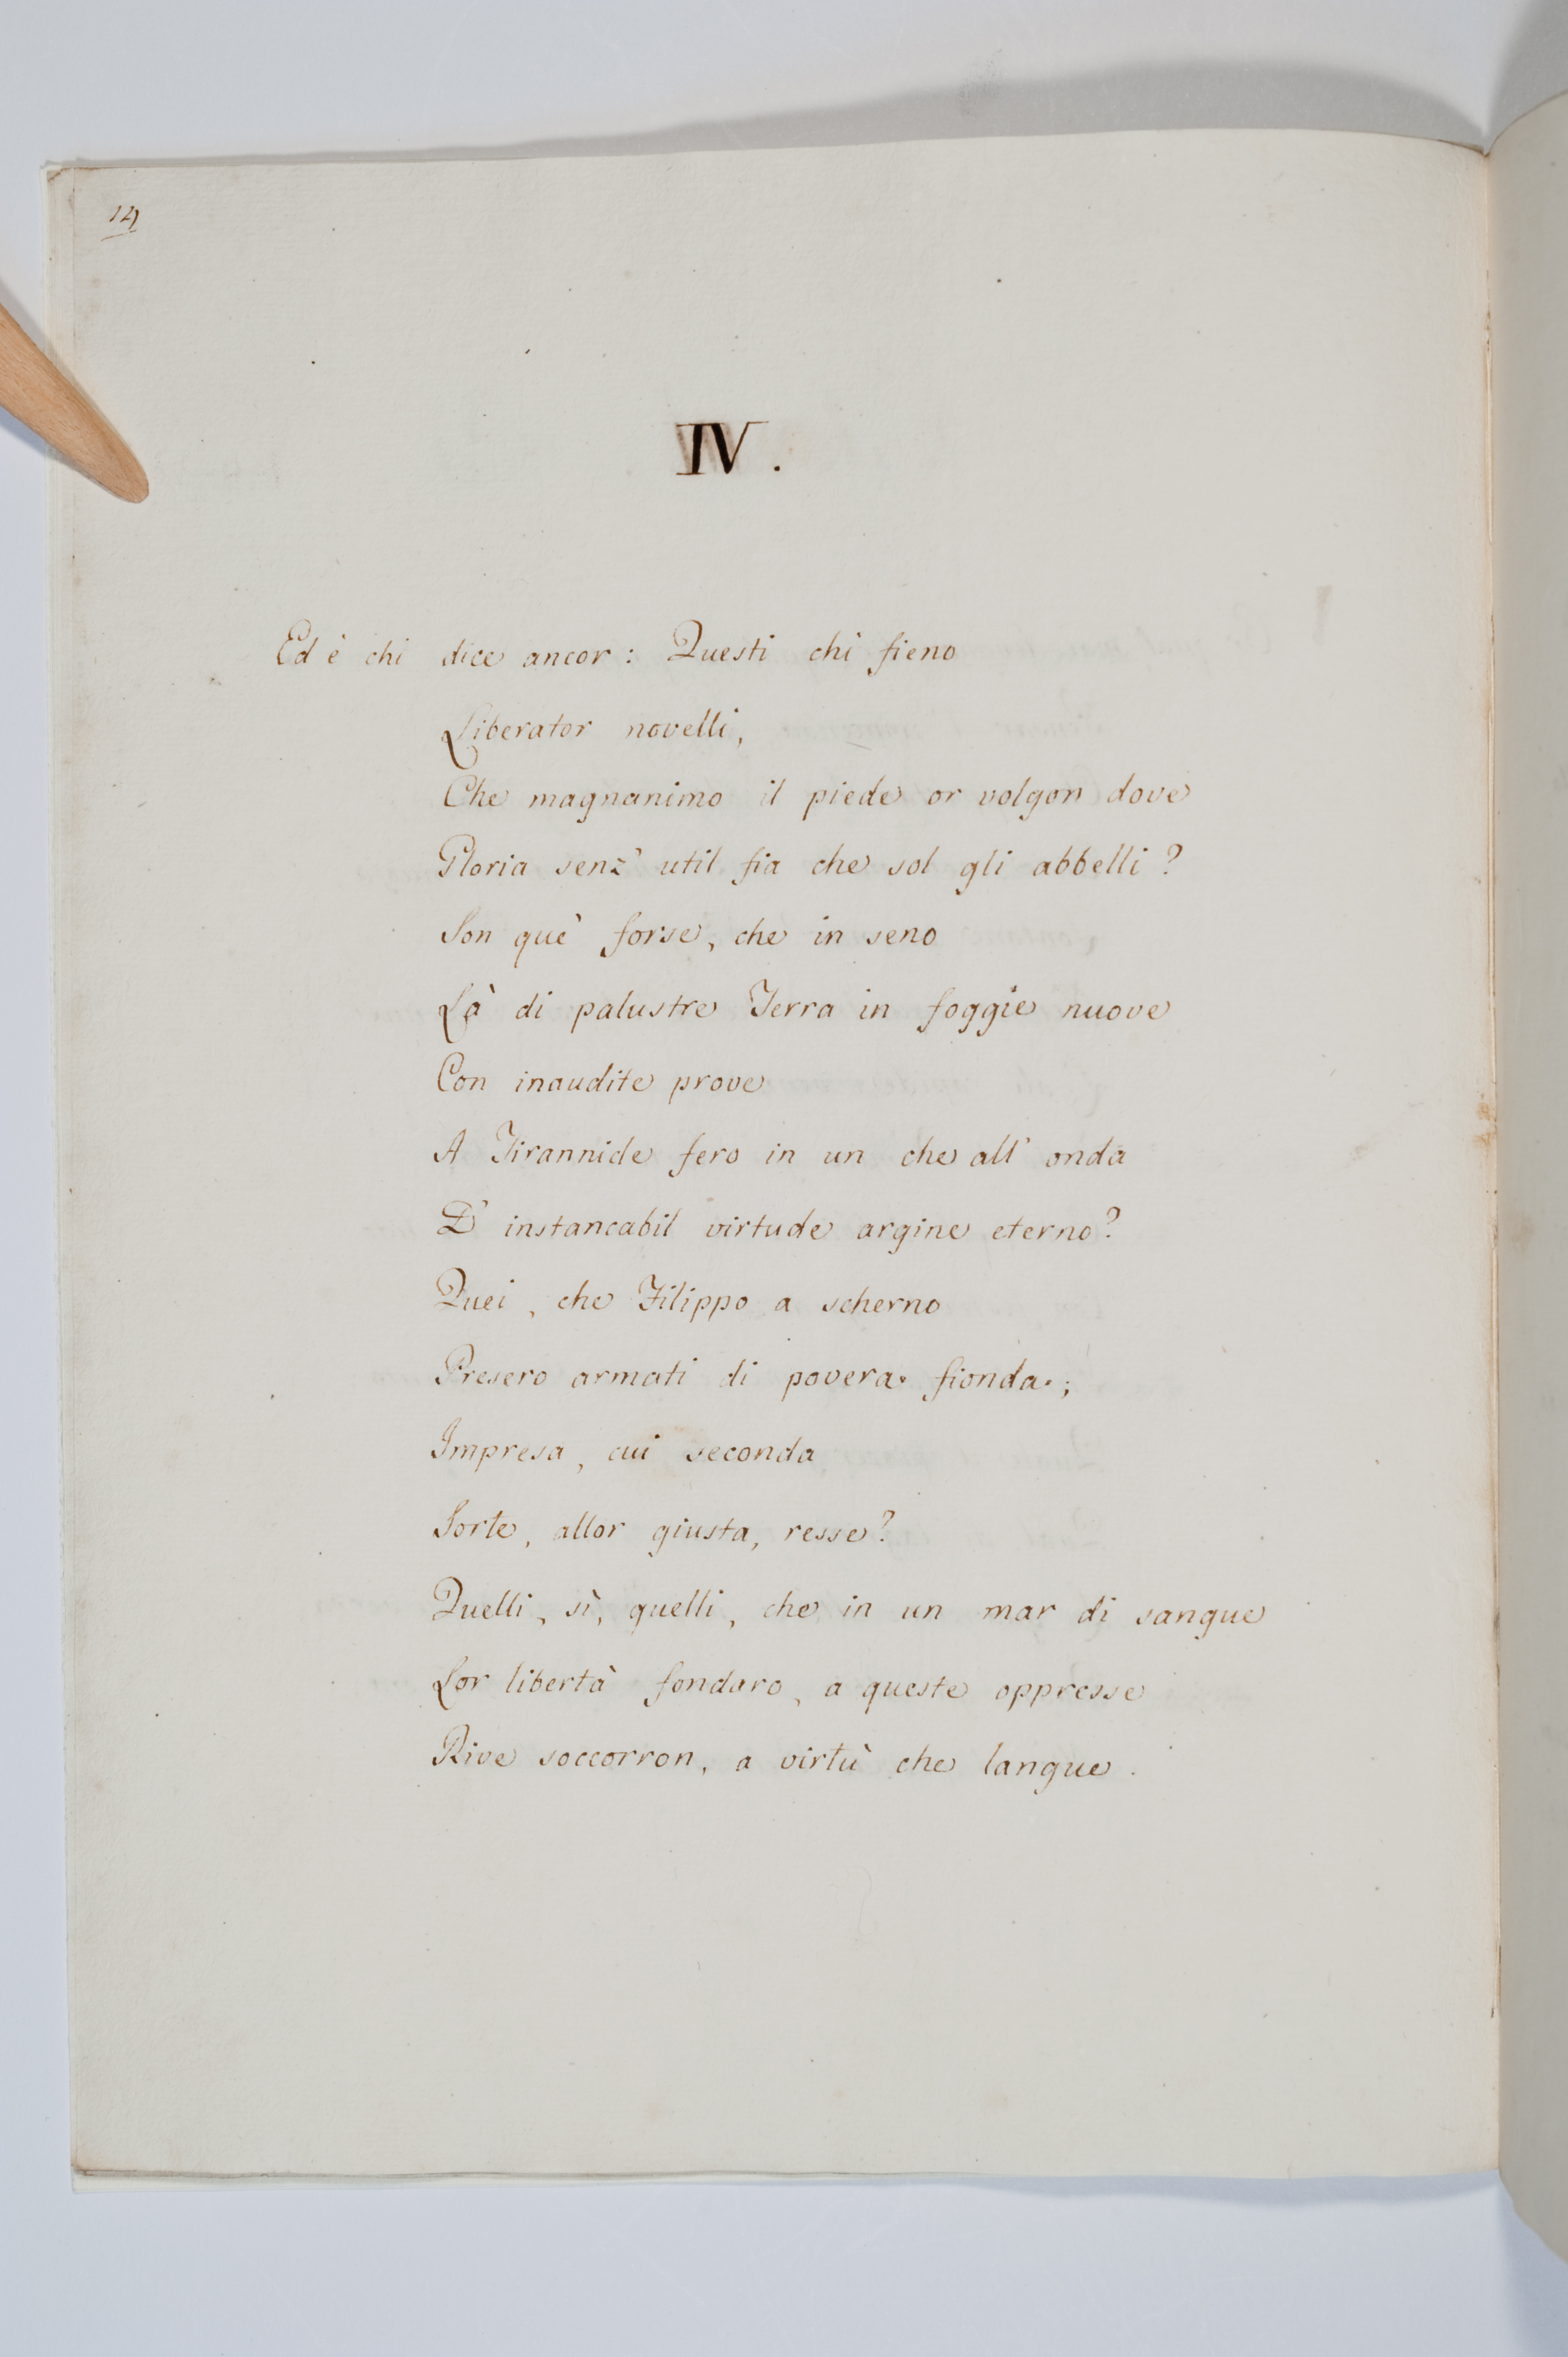 14
IV.
Ed è chi dice ancor: Questi chi fieno
Liberator novelli,
Che magnanimo il piede or volgon dove
Gloria senz' util fia che sol gli abbelli?
Son que' forse, che in seno
Là di palustre Terra in foggie nuove
Con inaudite prove
A Tirannide fero in un che all' onda
D' instancabil virtude argine eterno?
Quei, che Filippo a scherno
Presero armati di povera fionda;
Impresa, cui seconda
Sorte, allor giusta, resse?
Quelli, sì, quelli, che in un mar di sangue
Lor libertà fondaro, a queste oppresse
Rive soccorron, a virtù che langue.